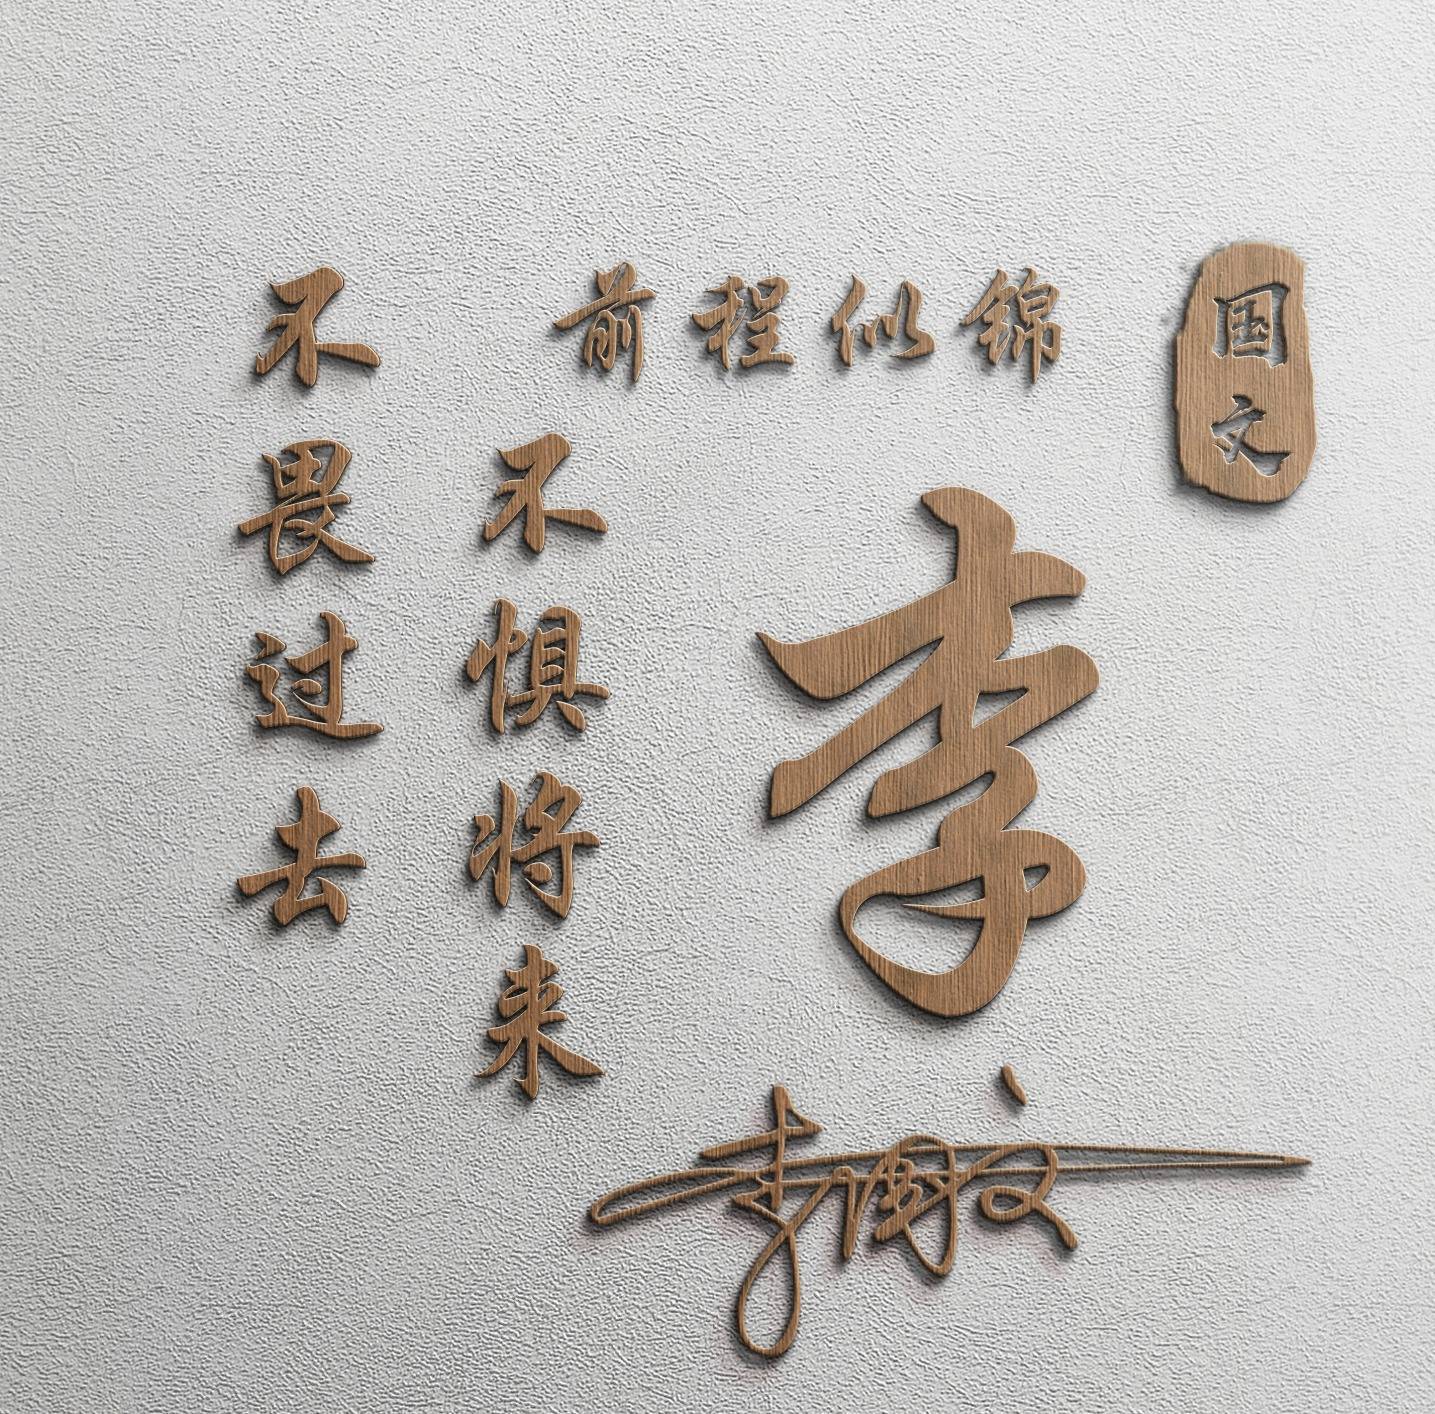 不畏过去
不惧将来
前程似锦
李
国文
李国文